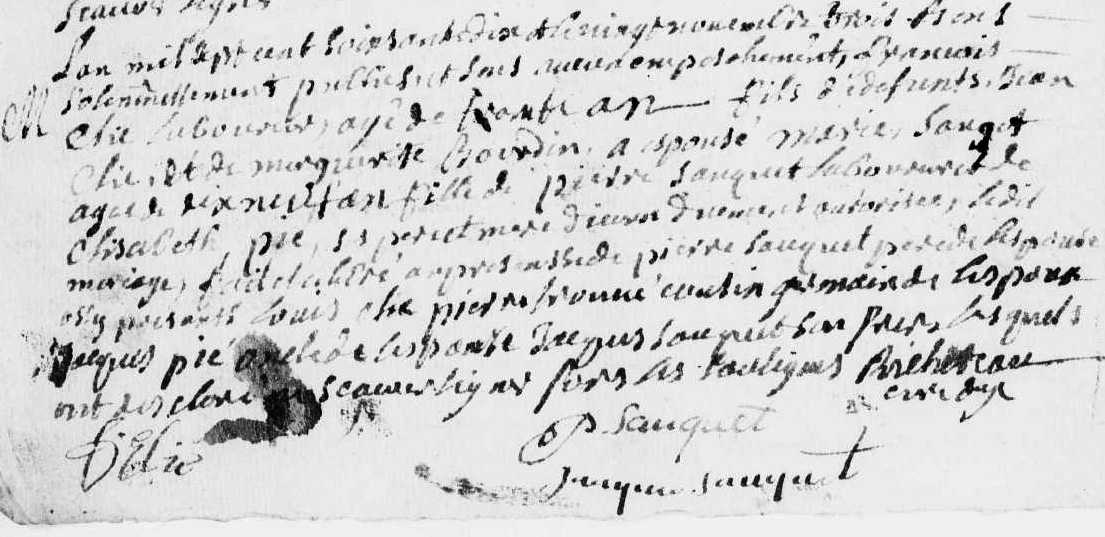 scavoir signé
L'an mil sept cent soixante dix et le vingt novembre trois bans
M solennellement publiés et sans aucun empeschement, François
Elie laboureur, agé de trente an fils de defunts Jean
Elie, et de marguerite Bourdin, a epousé marie, Sauquet
agée de dix neuf an fille de pierre Sauquet laboureur et de
Elisabeth pié, ses pere et mere d'iceux duement autorisée, ledit
mariage, fait et célébré en presence de pierre Sauquet pere de l'epouse
ossy presants Louis Elie pierre cousin germain de l'epoux
Jacques pié oncle de l'epouse Jacques Sauquet son frere, lesquels
ont desclaré ne scavoir signer fors les soussignés Richeteau
curé
f. Elie P Sauquet
Jacque Sauquet